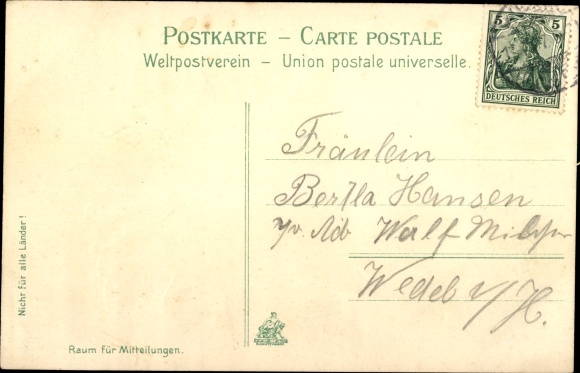 POSTKARTE – CARTE POSTALE
Weltpostverein – Union postale universelle.
5 5
DEUTSCHES REICH
Fräulein
Bertha Hansen
Wedel i/H.
Nicht für alle Länder!
Raum für Mitteilungen.